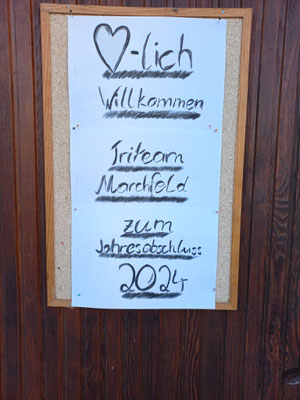 ♡-lich
Willkommen
Triteam
Marchfeld
zum
Jahresabschluss
2024